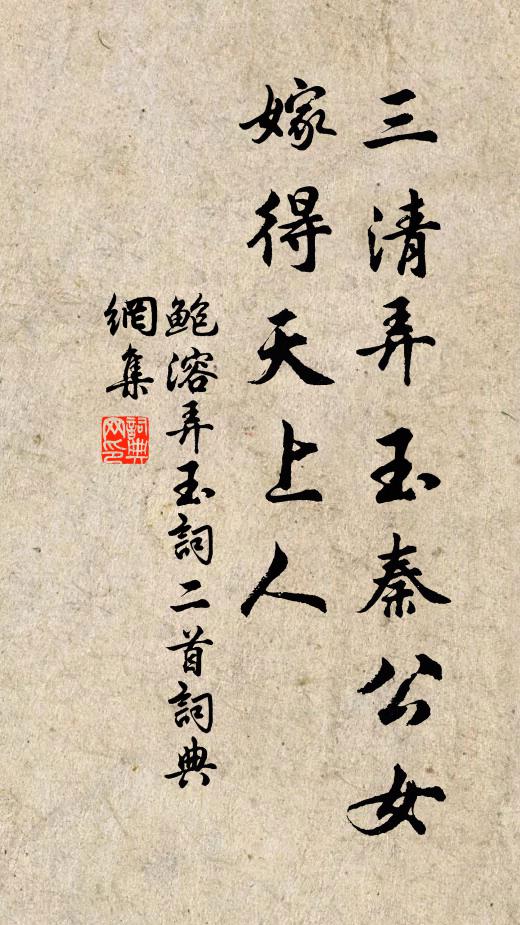 三清弄玉秦公女
嫁得天上人
鲍溶弄玉詞二首詞典
網集
詞典
网印